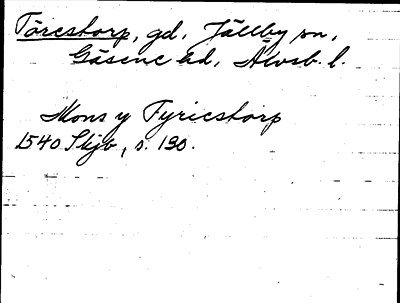 Torestorp, gd, Jällby sn,
Gäsene hd, Älvsb. l.
Mons y Tyricstorp
1540 Skjb, s. 190.